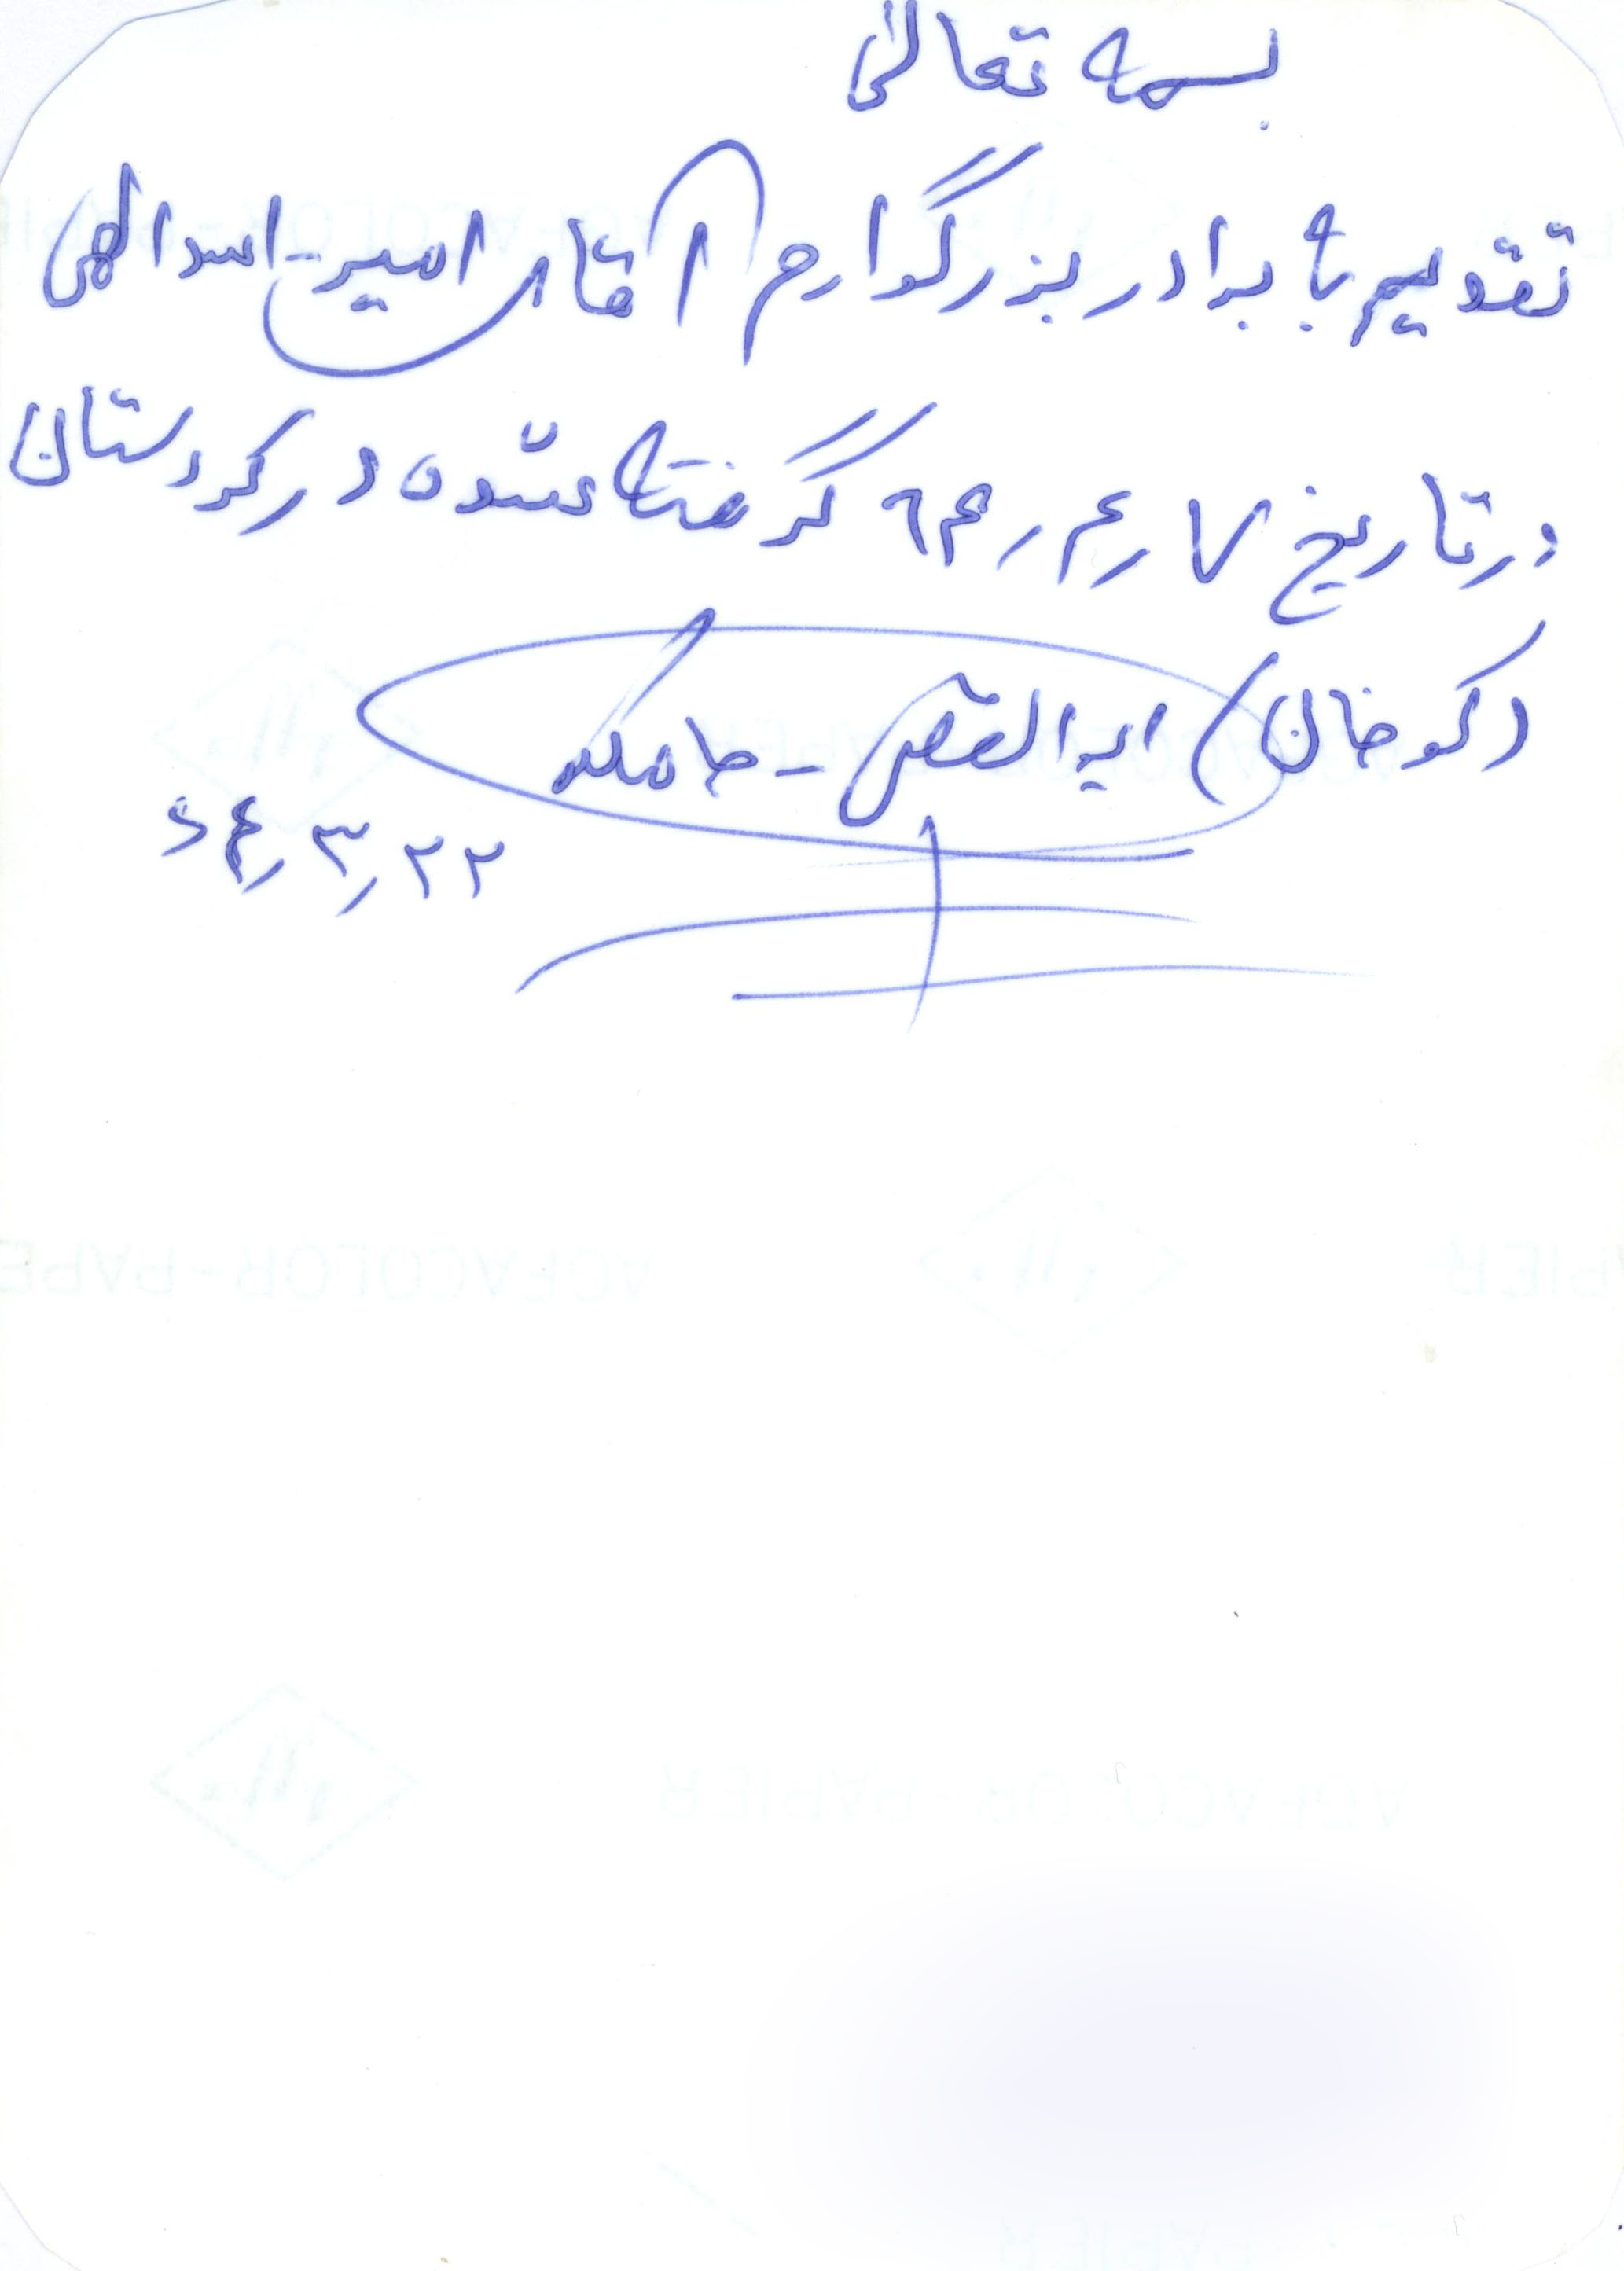 بسمه تعالی
تقدیم به برادر بزرگوارم آقای امیر - اسدالهی
در تاریخ ۷٫۴٫۶۴ گرفته شده در کردستان
(کوخان) ابوالفضل -
۲۲٫۳٫۶۴
AGFACOLOR-PAPIER